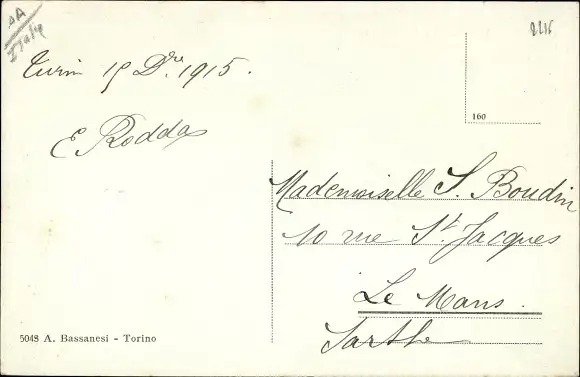 AA
Italie
2215
Turin 15 Dbre 1915.
160
E Rodda
Mademoiselle S. Boudin
10 rue St. Jacques
Le Mans.
Sarthe
5048 A. Bassanesi - Torino